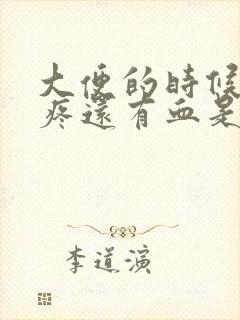 大便的時候
疼還有血是
李道演